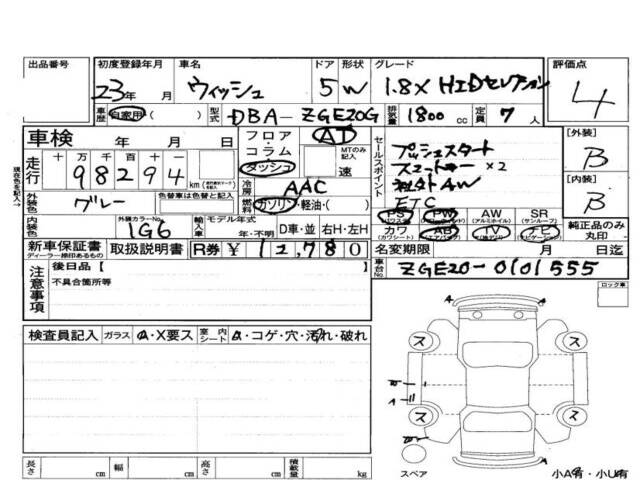 出品番号 初度登録年月 車名 ドア 形状 グレード 評価点
23年 月 ウィッシュ 5 W 1.8X HIDセレクション 4
車歴 自家用・( ) 型式 DBA-ZGE20G 排気量 1800 cc 定員 7 人
車検 年 月 日 フロア・コラム・ダッシュ AT MTのみ記入 速
セールスポイント プッシュスタート
スマートキー ×2
社外AW
ETC
[外装] B
[内装] B
走行 十 万 千 百 十 一
98294 km
冷房 AAC
外装色 グレー 色替車は色替と記入 燃料 ガソリン・軽油・( )
内装色 外装カラーNo. 1G6 輸入車 モデル年式 年・不明 D車・並 右H・左H
PS PW AW SR
(アルミホイル) (サンルーフ)
カワ AB TV ナビ
(カワシート) (エアバッグ)
純正品のみ丸印
新車保証書 取扱説明書 R券 ¥ 11,780
ディーラー捺印あるもの
名変期限 月 日迄
車台No. ZGE20-0101555
注意事項 後日品【 】
不具合箇所等
ロック車
検査員記入 ガラス A・X要ス 室内シート A・コゲ・穴・汚れ・破れ
A A
ス ス
ス ス
スペア
小A有・小U有
長さ cm 幅 cm 高さ cm 積載量 kg